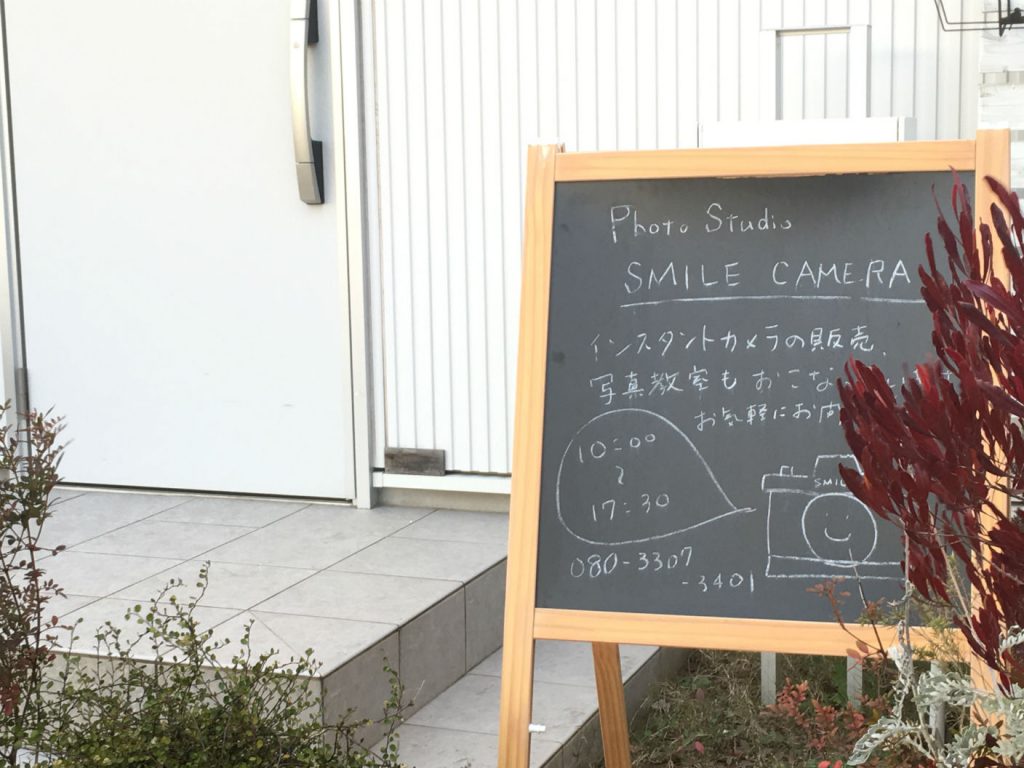 Photo Studio
SMILE CAMERA
インスタントカメラの販売、
写真教室もおこな
お気軽にお
10:00
~
17:30
080-3307
-3401
SMIL